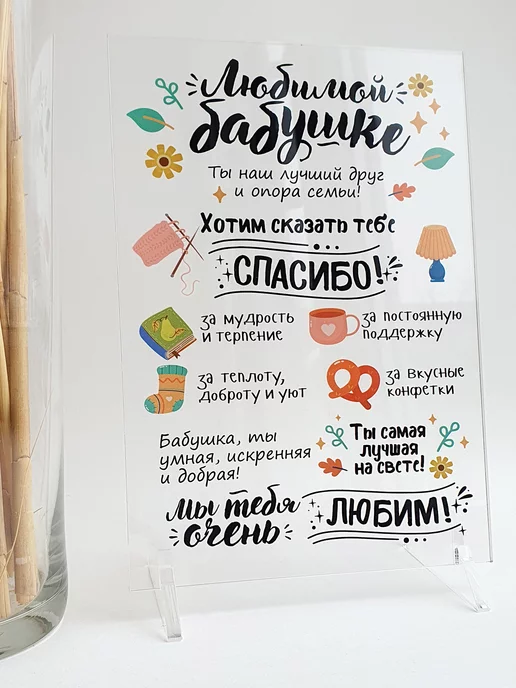 Любимой
бабушке
Ты наш лучший друг
и опора семьи!
Хотим сказать тебе
СПАСИБО!
за мудрость
и терпение
за постоянную
поддержку
за теплоту,
доброту и уют
за вкусные
конфетки
Бабушка, ты
умная, искренняя
и добрая!
Ты самая
лучшая
на свете!
мы тебя
очень
ЛЮБИМ!